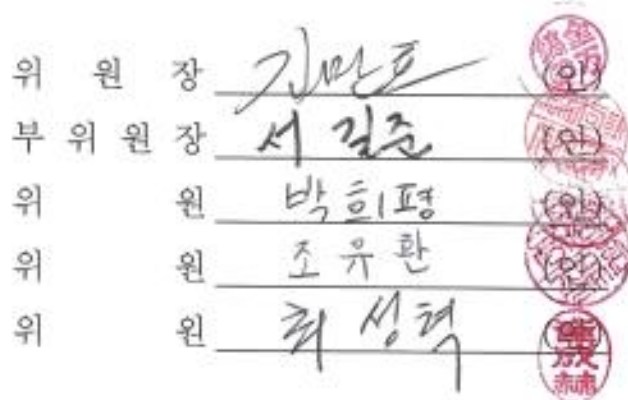 위 원 장 김만호 (인)
부 위 원 장 서 길준 (인)
위 원 박희평 (인)
위 원 조유환 (인)
위 원 최성혁